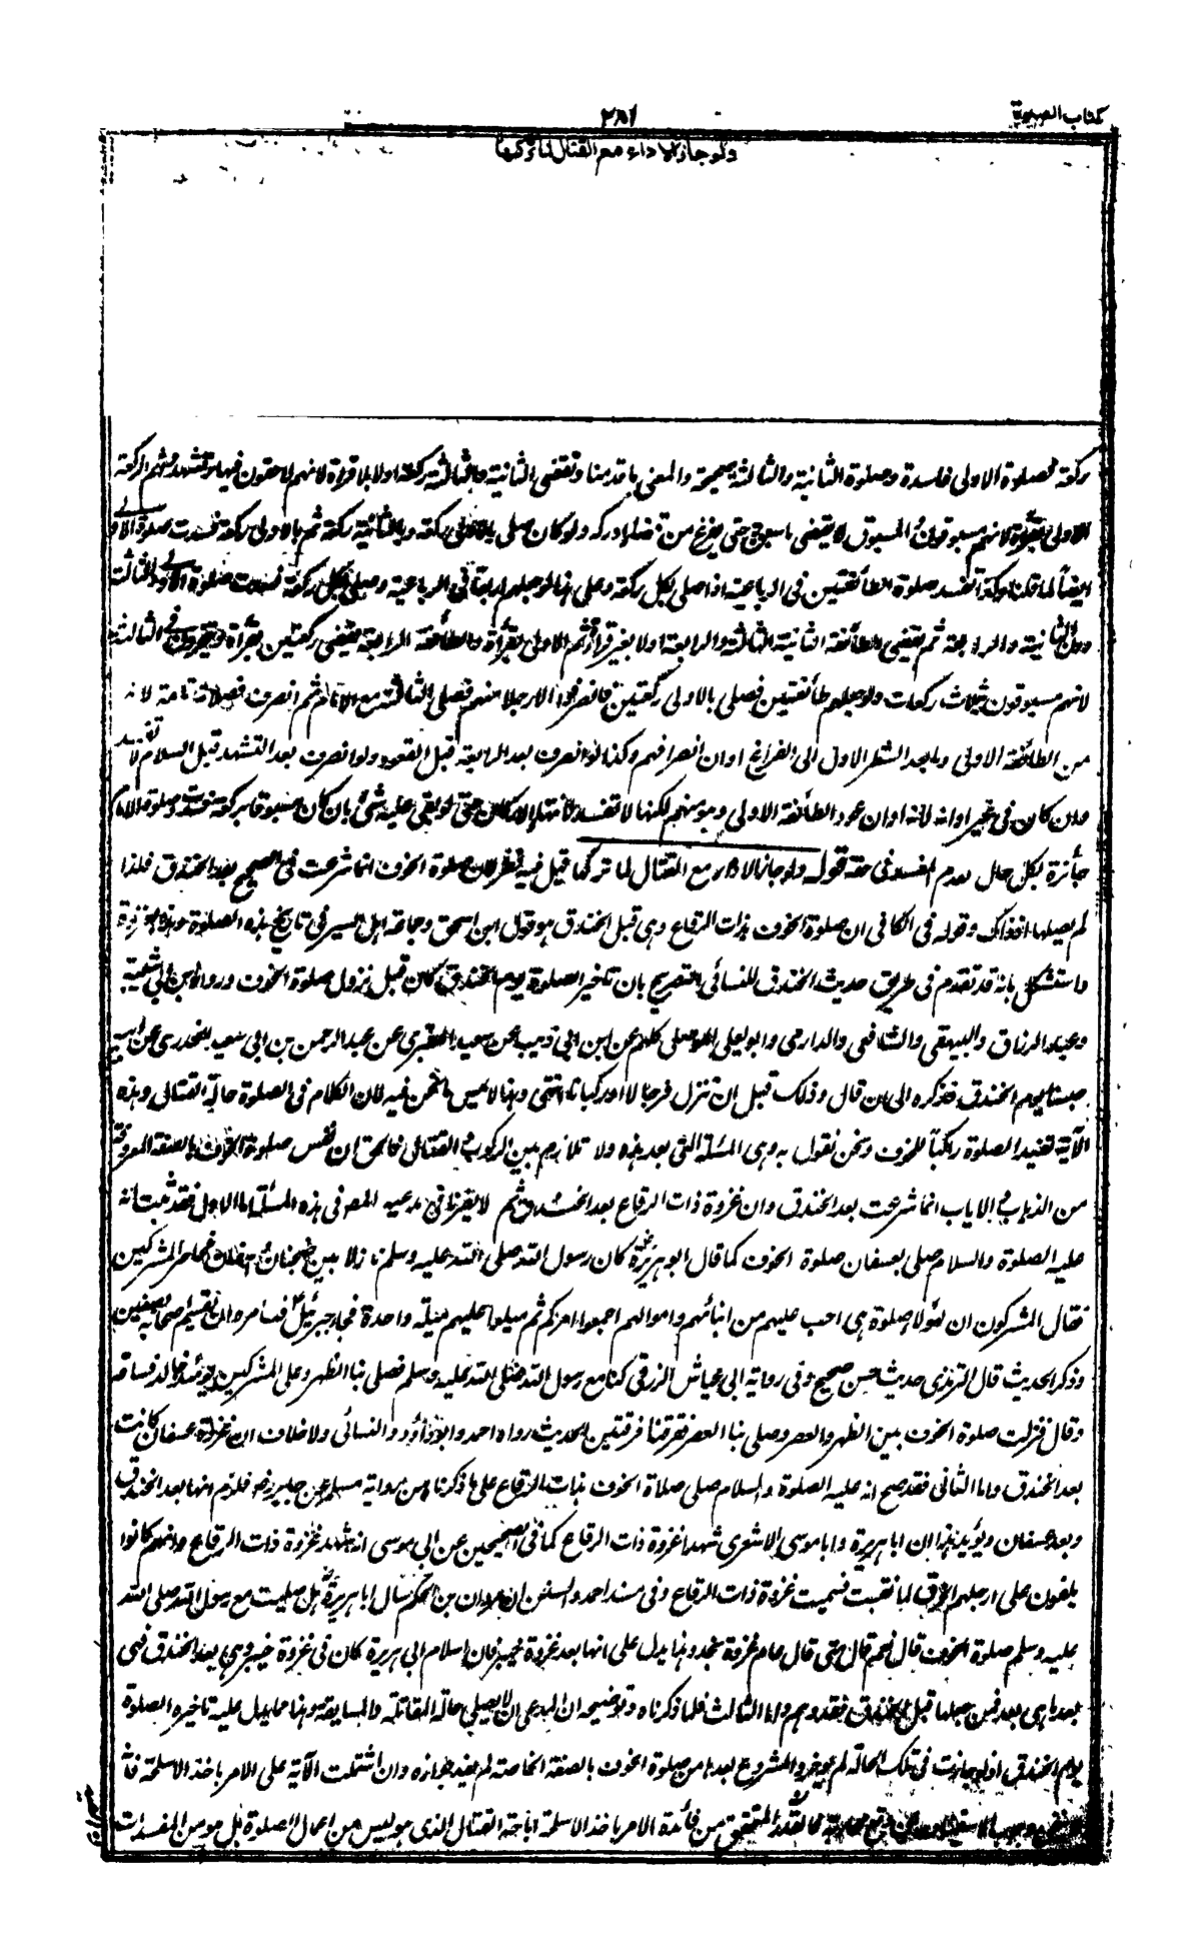 كتاب الصلوة
٢٨١
ولو جاز الاداء مع القتال لما تركها
ركعة فصلوة الاولى فاسدة وصلوة الثانية والثالثة صحيحة والمعنى ما قدمنا وتقضى الثانية والثالثة ركعة اولا بلا قراءة لانهم لاحقون فيها وتشهد ثم الركعة
الاولى بقراءة لانهم مسبوقون والمسبوق لا يقضى ما سبق حتى يفرغ من قضاء ما ادركه ولو كان صلى بالاولى ركعة وبالثانية ركعة ثم بالاولى ركعة فسدت صلوة الاولى
ايضاً لما قلنا وكذا تفسد صلوة الطائفتين فى الرباعية اذا صلى بكل ركعة وعلى هذا لو جعلهم اربعا فى الرباعية وصلى بكل ركعة فسدت صلوة الاولى والثالثة
دون الثانية والرابعة ثم تقضى الطائفة الثانية الثالثة والرابعة اولا بغير قراءة ثم الاولى بقراءة والطائفة الرابعة تقضى ركعتين بقراءة ويتخيرون فى الثالثة
لانهم مسبوقون بثلاث ركعات ولو جعلهم طائفتين فصلى بالاولى ركعتين فانصرفوا الا رجلا منهم فصلى الثالثة مع الامام ثم انصرف فصلاته تامة لانه
من الطائفة الاولى وما بعد الشطر الاول الى الفراغ اوان انصرافهم وكذا لو انصرف بعد الرابعة قبل القعود ولو انصرف بعد التشهد قبل السلام لا تفسد
وان كان فى غير اوانه لانه اوان عود الطائفة الاولى وهو منهم لكنها لا تفسد لانتهاء الاركان حتى لو بقى عليه شئ بان كان مسبوقا بركعة فسدت وصلوة الامام
جائزة بكل حال لعدم المفسد فى حقه قوله ولو جاز الاداء مع القتال لما تركها قيل فيه نظر لان صلوة الخوف انما شرعت فى الصحيح بعد الخندق فلذا
لم يصلها اذ ذاك وقوله فى الكافى ان صلوة الخوف بذات الرقاع وهى قبل الخندق هو قول ابن اسحق وجماعة اهل السير فى تاريخ هذه الصلوة وهذه الغزوة
واستشكل بانه قد تقدم فى طريق حديث الخندق للنسائى التصريح بان تاخير الصلوة يوم الخندق كان قبل نزول صلوة الخوف ورواه ابن ابى شيبة
وعبد الرزاق والبيهقى والشافعى والدارمى وابو يعلى الموصلى كلهم عن ابن ابى ذيب عن سعيد المقبرى عن عبد الرحمن بن ابى سعيد الخدرى عن ابيه
حبسنا يوم الخندق فذكره الى ان قال وذلك قبل ان تنزل فرجالا او ركبانا انتهى وهذا لا يمس ما نحن فيه لان الكلام فى الصلوة حالة القتال وهذه
الآية تفيد الصلوة راكبا للخوف ونحن نقول به وهى المسئلة التى بعد هذه ولا تلازم بين الركوب والقتال فالحق ان نفس صلوة الخوف بالصفة المعروفة
من الذهاب والاياب انما شرعت بعد الخندق وان غزوة ذات الرقاع بعد الخندق ثم لا يضرنا فى مدعيه المص فى هذه المسئلة اما الاول فقد ثبت انه
عليه الصلوة والسلام صلى بعسفان صلوة الخوف كما قال ابو هريرة كان رسول الله صلى الله عليه وسلم نازلا بين ضجنان وعسفان محاصر المشركين
فقال المشركون ان لهؤلاء صلوة هى احب عليهم من ابنائهم واموالهم اجمعوا امركم ثم ميلوا عليهم ميلة واحدة فجاء جبرئيل فامره ان يقسم اصحابه نصفين
وذكر الحديث قال الترمذى حديث حسن صحيح وفى رواية ابى عياش الزرقى كنا مع رسول الله صلى الله عليه وسلم فصلى بنا الظهر وعلى المشركين يومئذ خالد فساقه
وقال فنزلت صلوة الخوف بين الظهر والعصر وصلى بنا العصر ففرقنا فرقتين الحديث رواه احمد وابو داؤد والنسائى ولا خلاف ان غزوة عسفان كانت
بعد الخندق واما الثانى فقد صح انه عليه الصلوة والسلام صلى صلاة الخوف بذات الرقاع على ما ذكرناه من رواية مسلم عن جابر رضـ فلزم انها بعد الخندق
وبعد عسفان ويؤيد هذا ان ابا هريرة وابا موسى الاشعرى شهدا غزوة ذات الرقاع كما فى الصحيحين عن ابى موسى انه شهد غزوة ذات الرقاع وانهم كانوا
يلفون على ارجلهم الخرق لما نقبت فسميت غزوة ذات الرقاع وفى مسند احمد والسنن ان مروان بن الحكم سال ابا هريرة هل صليت مع رسول الله صلى الله
عليه وسلم صلوة الخوف قال نعم قال متى قال عام غزوة نجد وهذا يدل على انها بعد غزوة خيبر فان اسلام ابى هريرة كان فى غزوة خيبر وهى بعد الخندق فهى
بعد ما هى بعد فمن جعلها قبل الخندق فقد وهم واما الثالث فلما ذكرناه وتوضيحه ان المدعى ان لا يصلى حالة المقاتلة والمسايفة وهذا مما يدل عليه تاخيره الصلوة
يوم الخندق اذ لو جازت فى تلك الحالة لم يؤخر والمشروع بعدها من صلوة الخوف بالصفة الخاصة لم يفد جوازه وان اشتملت الآية على الامر باخذ الاسلحة فانه
القدر المتحقق من فائدة الامر باخذ الاسلحة اباحة القتال الذى هو ليس من اعمال الصلوة بل هو من المفسدات